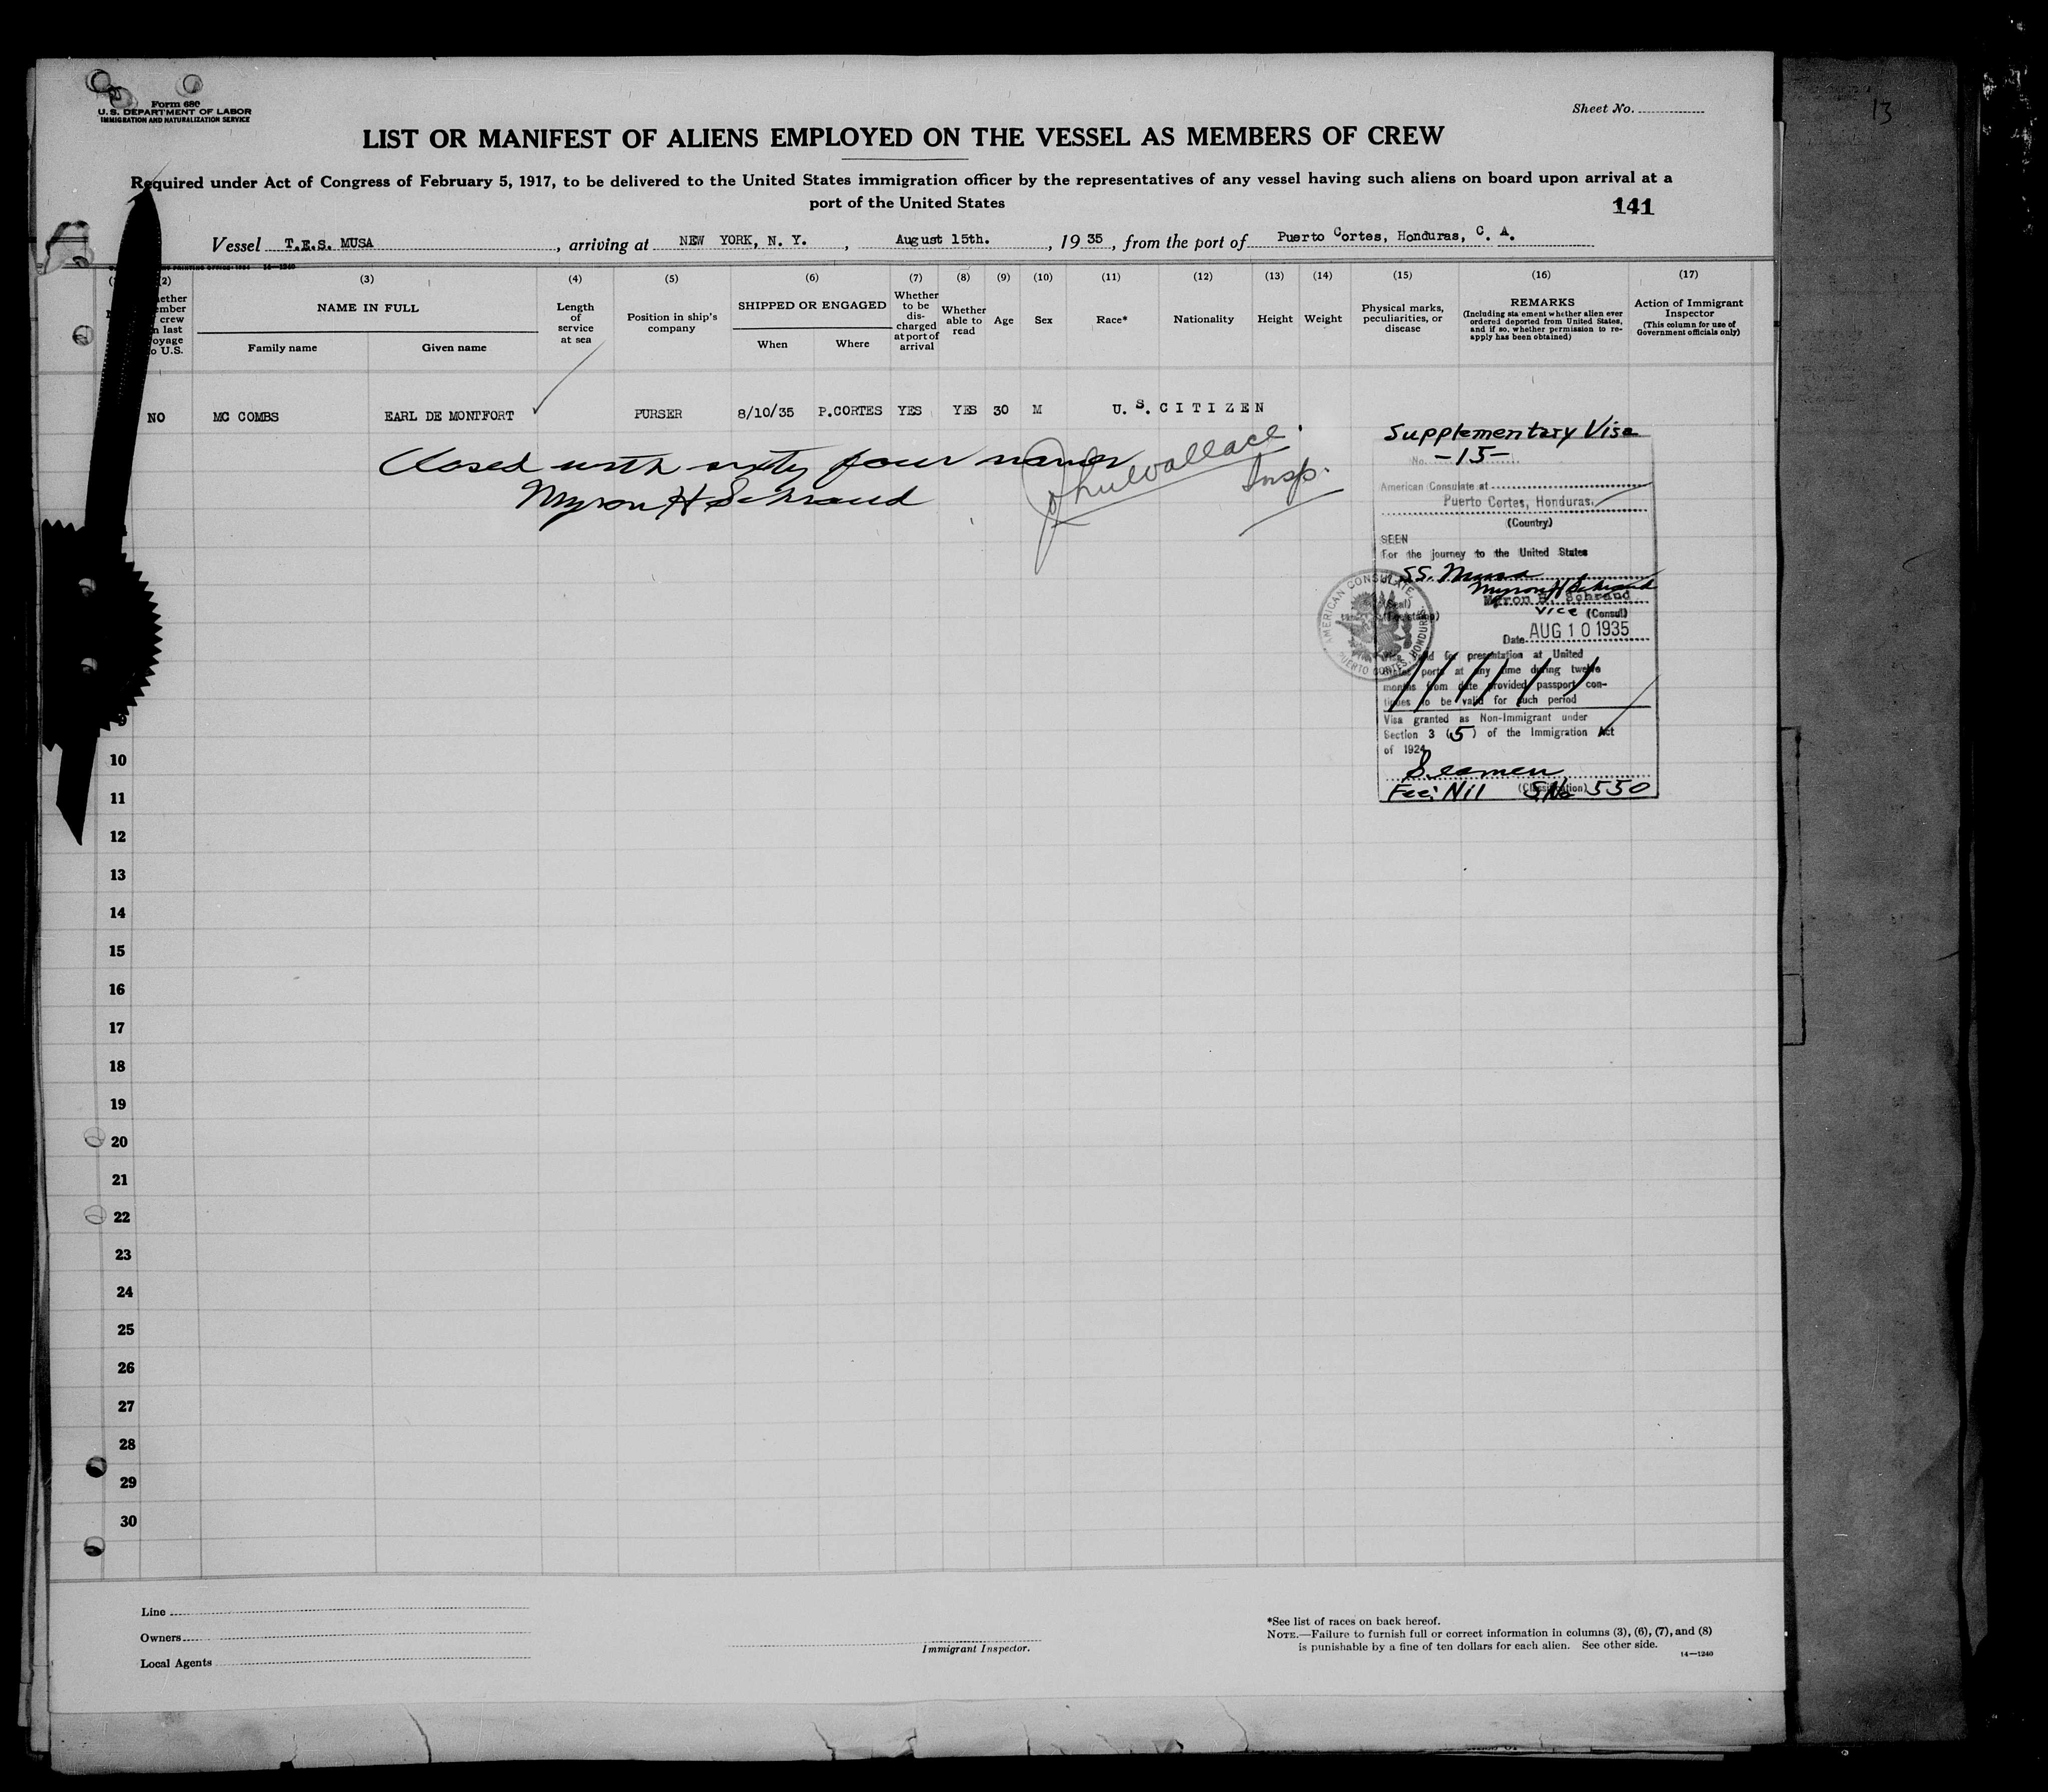 Form 680
U. S. DEPARTMENT OF LABOR
IMMIGRATION AND NATURALIZATION SERVICE
Sheet No.
13
LIST OR MANIFEST OF ALIENS EMPLOYED ON THE VESSEL AS MEMBERS OF CREW
Required under Act of Congress of February 5, 1917, to be delivered to the United States immigration officer by the representatives of any vessel having such aliens on board upon arrival at a
port of the United States
141
Vessel T.E.S. MUSA, arriving at NEW YORK, N. Y., August 15th., 1935, from the port of Puerto Cortes, Honduras, C. A.
(2) (3) (4) (5) (6) (7) (8) (9) (10) (11) (12) (13) (14) (15) (16) (17)
NAME IN FULL
Family name Given name
Length of service at sea
Position in ship's company
SHIPPED OR ENGAGED
When Where
Whether to be discharged at port of arrival
Whether able to read
Age
Sex
Race*
Nationality
Height
Weight
Physical marks, peculiarities, or disease
REMARKS
(Including statement whether alien ever ordered deported from United States, and if so, whether permission to re-apply has been obtained)
Action of Immigrant Inspector
(This column for use of Government officials only)
NO MC COMBS EARL DE MONTFORT PURSER 8/10/35 P.CORTES YES YES 30 M U. S. CITIZEN
Closed with sixty four names
Myron H Schraud
Jhu Wallace
Insp.
Supplementary Visa
No. -15-
American Consulate at
Puerto Cortes, Honduras.
(Country)
SEEN
For the journey to the United States
SS. Musa
Myron H Schraud
Myron H. Schraud
Vice (Consul)
Date AUG 10 1935
AMERICAN CONSULATE, PUERTO CORTES, HONDURAS
for presentation at United
ports at any time during twelve
months from date provided passport con-
tinues to be valid for such period
Visa granted as Non-Immigrant under
Section 3 (5) of the Immigration Act
of 1924
Seamen
(Classification)
Fee: Nil SNo 550
9
10
11
12
13
14
15
16
17
18
19
20
21
22
23
24
25
26
27
28
29
30
Line
Owners
Local Agents
Immigrant Inspector.
*See list of races on back hereof.
NOTE.—Failure to furnish full or correct information in columns (3), (6), (7), and (8)
is punishable by a fine of ten dollars for each alien. See other side.
14—1240